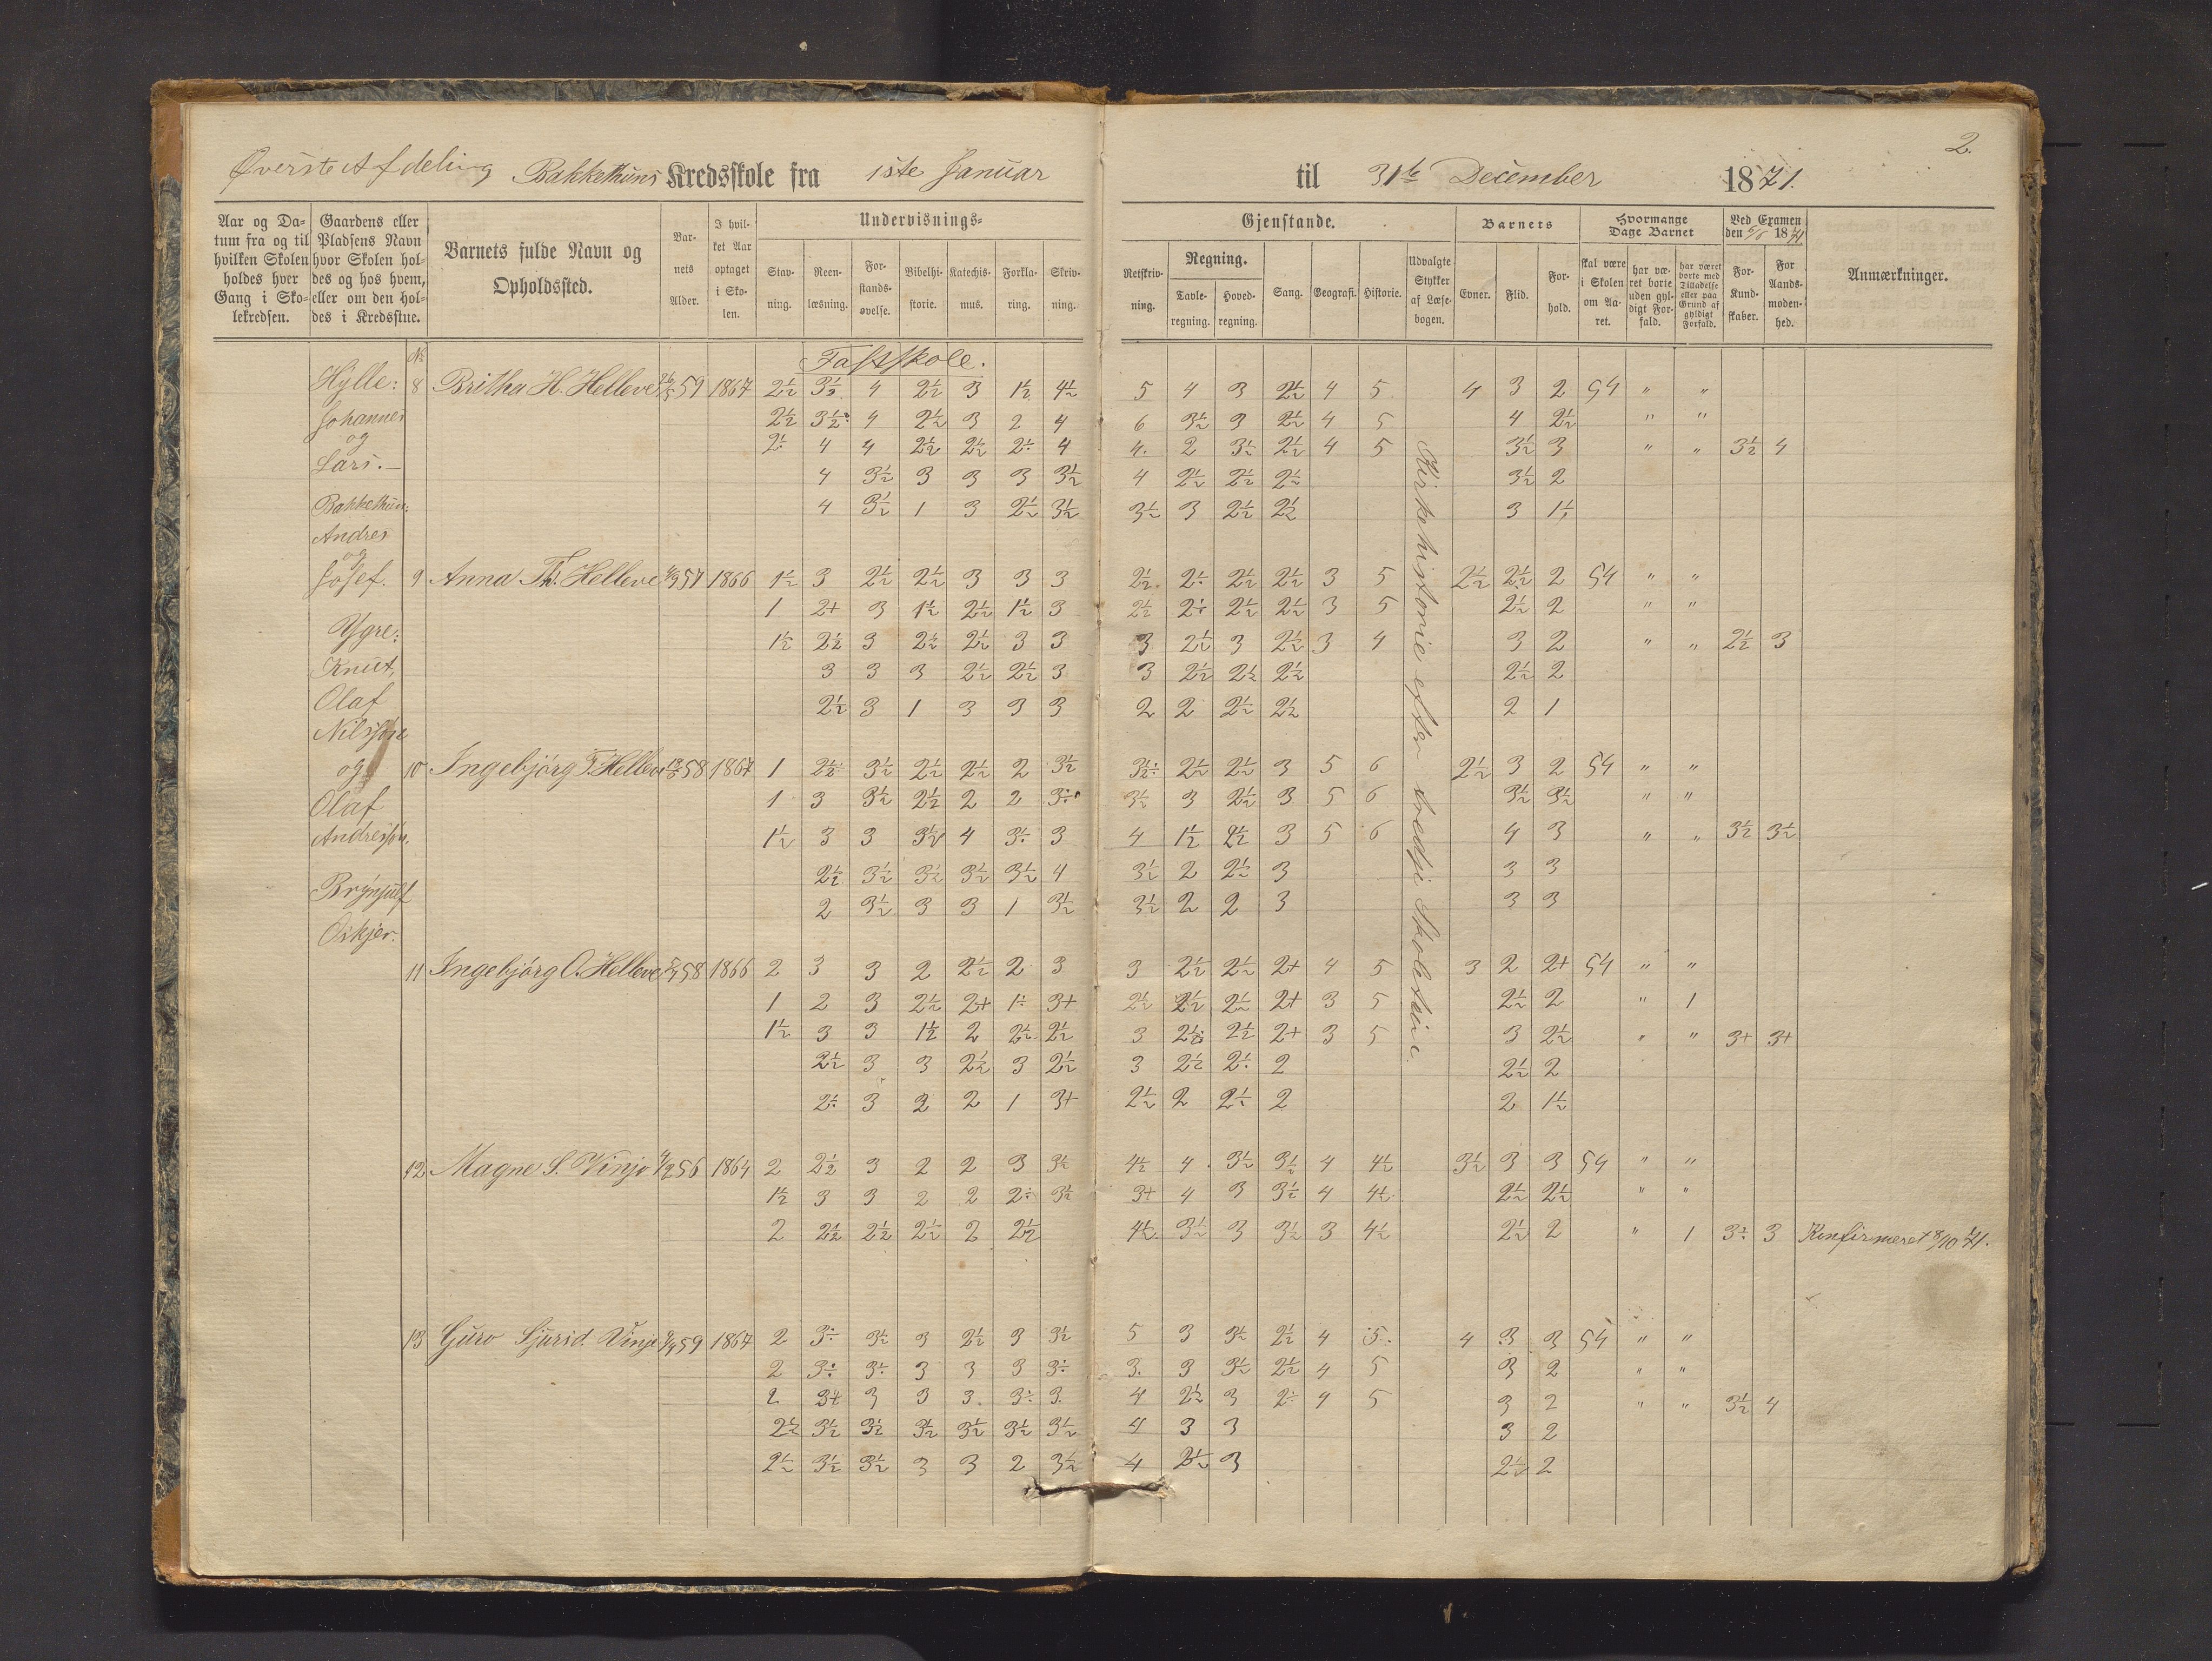 2.
Øverste Afdeling Bakkethuns Kredsskole fra 1ste Januar til 31te December 1871.
Aar og Da-
tum fra og til
hvilken Skolen
holdes hver
Gang i Sko-
lekredsen.
Gaardens eller
Pladsens Navn
hvor Skolen hol-
des og hos hvem,
eller om den hol-
des i Kredsstue.
Barnets fulde Navn og
Opholdssted.
Bar-
nets
Alder.
I hvil-
ket Aar
optaget
i Sko-
len.
Undervisnings-
Stav-
ning.
Reen-
læsning.
For-
stands-
øvelse.
Bibelhi-
storie.
Katechis-
mus.
Forkla-
ring.
Skriv-
ning.
Gjenstande.
Retskriv-
ning.
Regning.
Tavle-
regning.
Hoved-
regning.
Sang.
Geografi.
Historie.
Udvalgte
Stykker
af Læse-
bogen.
Barnets
Evner.
Flid.
For-
hold.
Hvormange
Dage Barnet
skal være
i Skolen
om Aa-
ret.
har væ-
ret borte
uden gyl-
digt For-
fald.
har været
borte med
Tilladelse
eller paa
Grund af
gyldigt
Forfald.
Ved Examen
den 1871
For-
Kund-
skaber.
For
Aands-
moden-
hed.
Anmærkninger.
Fastskole.
Hylle:
Johannes
og
Lars.
Bakkethun:
Andres
og
Josef.
Ygre:
Knut,
Olaf
Nilssøn
og
Olaf
Andressøn.
Brynjulf
Oskjer.
Kirkehistorie efter tredje Skoletrin.
No
8 Britha H. Helleve 59 1867 2½ 3½ 4 2½ 3 1½ 4½ 5 4 3 2½ 4 5 4 3 2 54 " "
2½ 3½ 4 2½ 3 2 4 6 3½ 3 2½ 4 5 4 2½ " "
2 4 4 2½ 2½ 2 4 4 2 3½ 2½ 4 5 3½ 3 " " 3½ 4
4 3½ 3 3 3 3½ 4 2½ 2½ 2½ 3½ 2
4 3½ 1 3 2½ 3½ 3½ 3 2½ 2½ 3 1½
9 Anna Th. Helleve 57 1866 1½ 3 2½ 2½ 3 3 3 2½ 2÷ 2½ 2½ 3 5 2½ 2½ 2 54 " "
1 2+ 3 1½ 2½ 1½ 3 2½ 2÷ 2½ 2½ 3 5 2½ 2 " "
1½ 2½ 3 2½ 2½ 3 3 3 2½ 3 2½ 3 4 3 2 " " 2½ 3
3 3 3 2½ 2½ 3 3 2½ 2½ 2½ 2½ 2
2½ 3 1 3 3 3 2 2 2½ 2½ 2 1
10 Ingebjörg T. Helleve 58 1867 1 2½ 3½ 2½ 2½ 2 3½ 3½ 2½ 2½ 3 5 6 2½ 3 2 54 " "
1 3 3½ 2½ 2 2 3÷ 3½ 3 2½ 3 5 6 3½ 3½ " "
1½ 3 3 3½ 4 3÷ 3 4 1½ 2½ 3 5 6 4 3 " " 3½ 3½
2½ 3½ 3½ 3½ 3½ 4 3½ 2 2½ 3 3 3
2 3½ 3 3 1 3½ 3½ 2 2 3 3 3
11 Ingebjörg O. Helleve 58 1866 2 3 3 2 2½ 2 3 3 2½ 2½ 2+ 4 5 3 2 2+ 54 " "
1 2 3 2½ 2+ 1÷ 3+ 2½ 2½ 2½ 2+ 3 5 2½ 2 " 1
1½ 3 3 1½ 2 2½ 2½ 3 2½ 2½ 2+ 3 5 3 2½ " " 3+ 3+
2½ 3 3 2½ 3 2½ 3 2½ 2÷ 2 2½ 2
2÷ 3 2 2 1 3+ 2½ 2 2½ 2 2 1½
12 Magne S. Vinje 56 1864 2 2½ 3 2 2 3 3½ 4½ 4 3½ 3½ 4 4½ 3½ 3 3 54 " "
1½ 3 3 2 2 2÷ 3½ 3+ 4 3 3½ 4 4½ 2½ 2½ " "
2 2½ 2½ 2½ 2 2½ 4½ 3½ 3 3½ 3 4½ 2½ 2 " 1 3÷ 3 Konfirmeret 8/10 71.
13 Guro Sjursd. Vinje 59 1867 2 3÷ 3½ 3 2½ 3 3½ 5 3 3½ 2½ 4 5 4 3 3 54 " "
2 3÷ 3÷ 3 3 3 3÷ 3 3 3½ 2½ 4 5 3 2 " "
2 3+ 3 3 3 3÷ 3 4 2½ 3 2÷ 4 5 3 2 " " 3½ 4
2½ 3½ 3½ 3½ 3½ 3½ 3½ 4 3 3 3 2
2½ 3½ 3½ 3 3 2 3½ 4 2½ 3 2½ 2